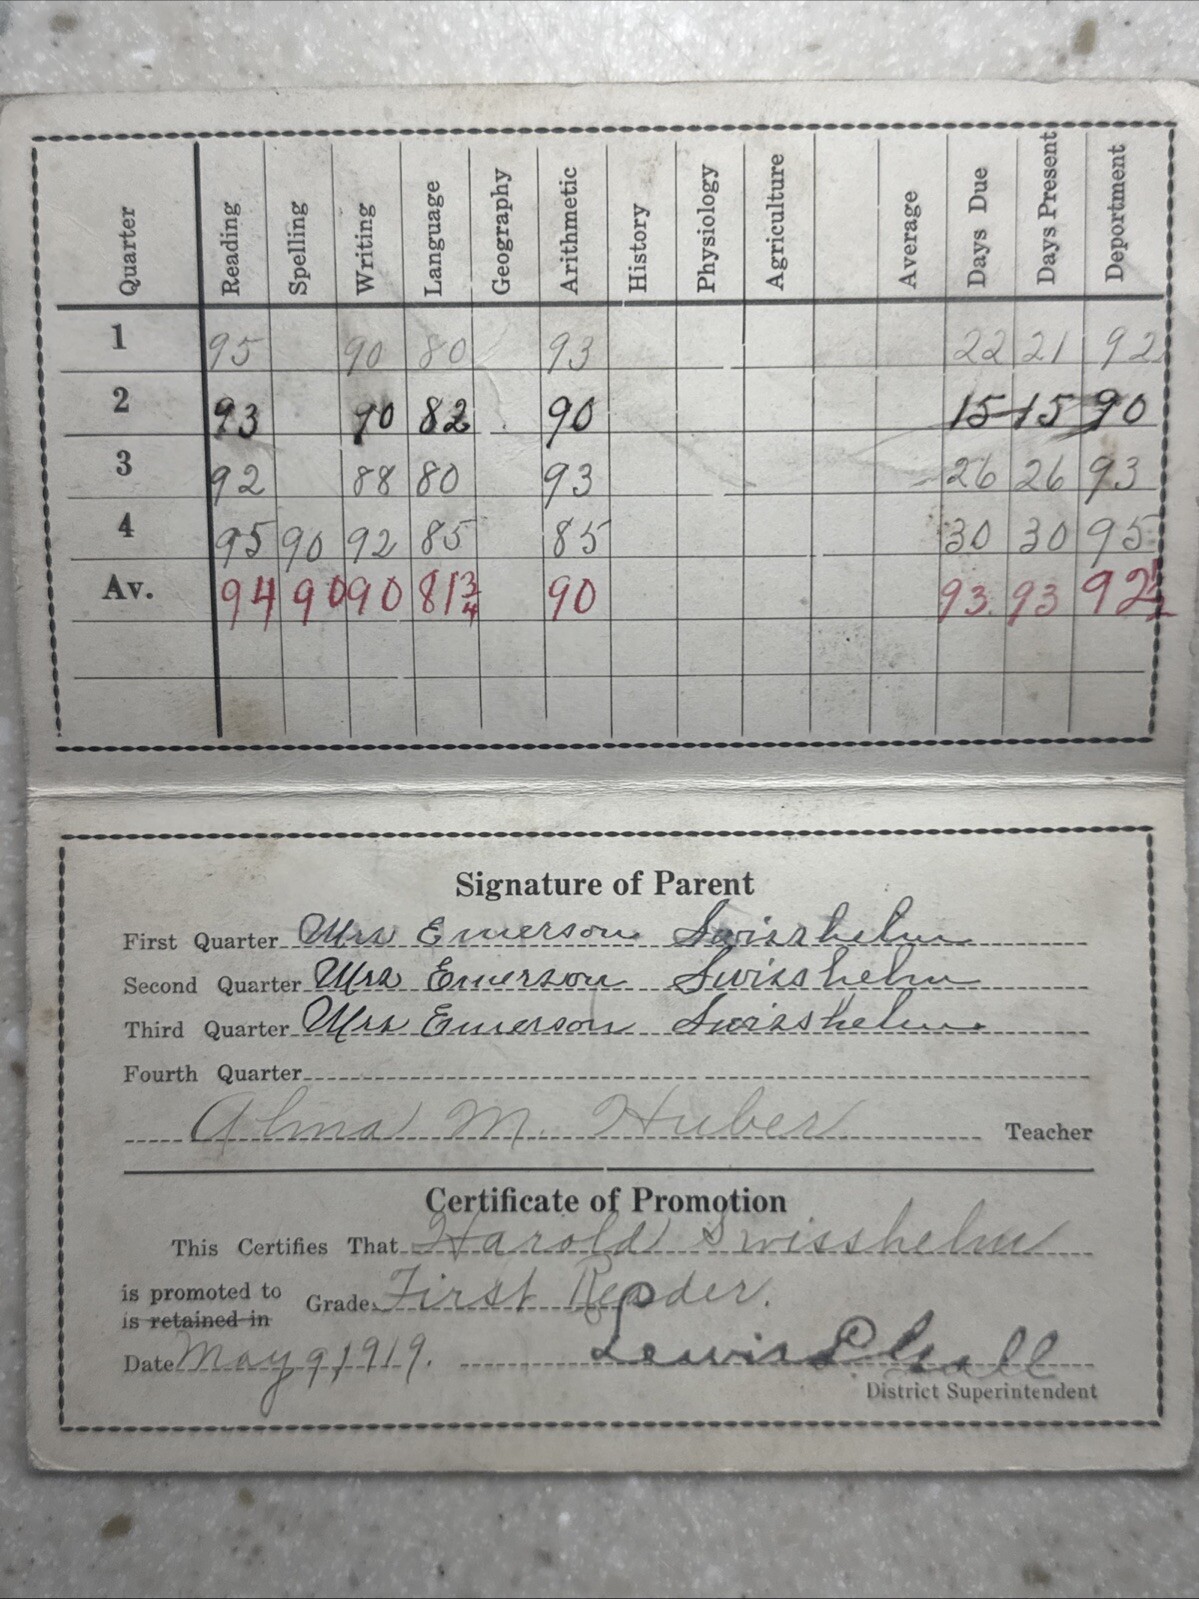 Quarter Reading Spelling Writing Language Geography Arithmetic History Physiology Agriculture Average Days Due Days Present Deportment
1 95 90 80 93 22 21 92
2 93 90 82 90 15 15 90
3 92 88 80 93 26 26 93
4 95 90 92 85 85 30 30 95
Av. 94 90 90 81 3/4 90 93 93 92 1/2
Signature of Parent
First Quarter Mrs Emerson Swisshelm
Second Quarter Mrs Emerson Swisshelm
Third Quarter Mrs Emerson Swisshelm
Fourth Quarter
Alma M. Huber Teacher
Certificate of Promotion
This Certifies That Harold Swisshelm
is promoted to
is retained in Grade First Reader.
Date May 9, 1919. Lewis
District Superintendent